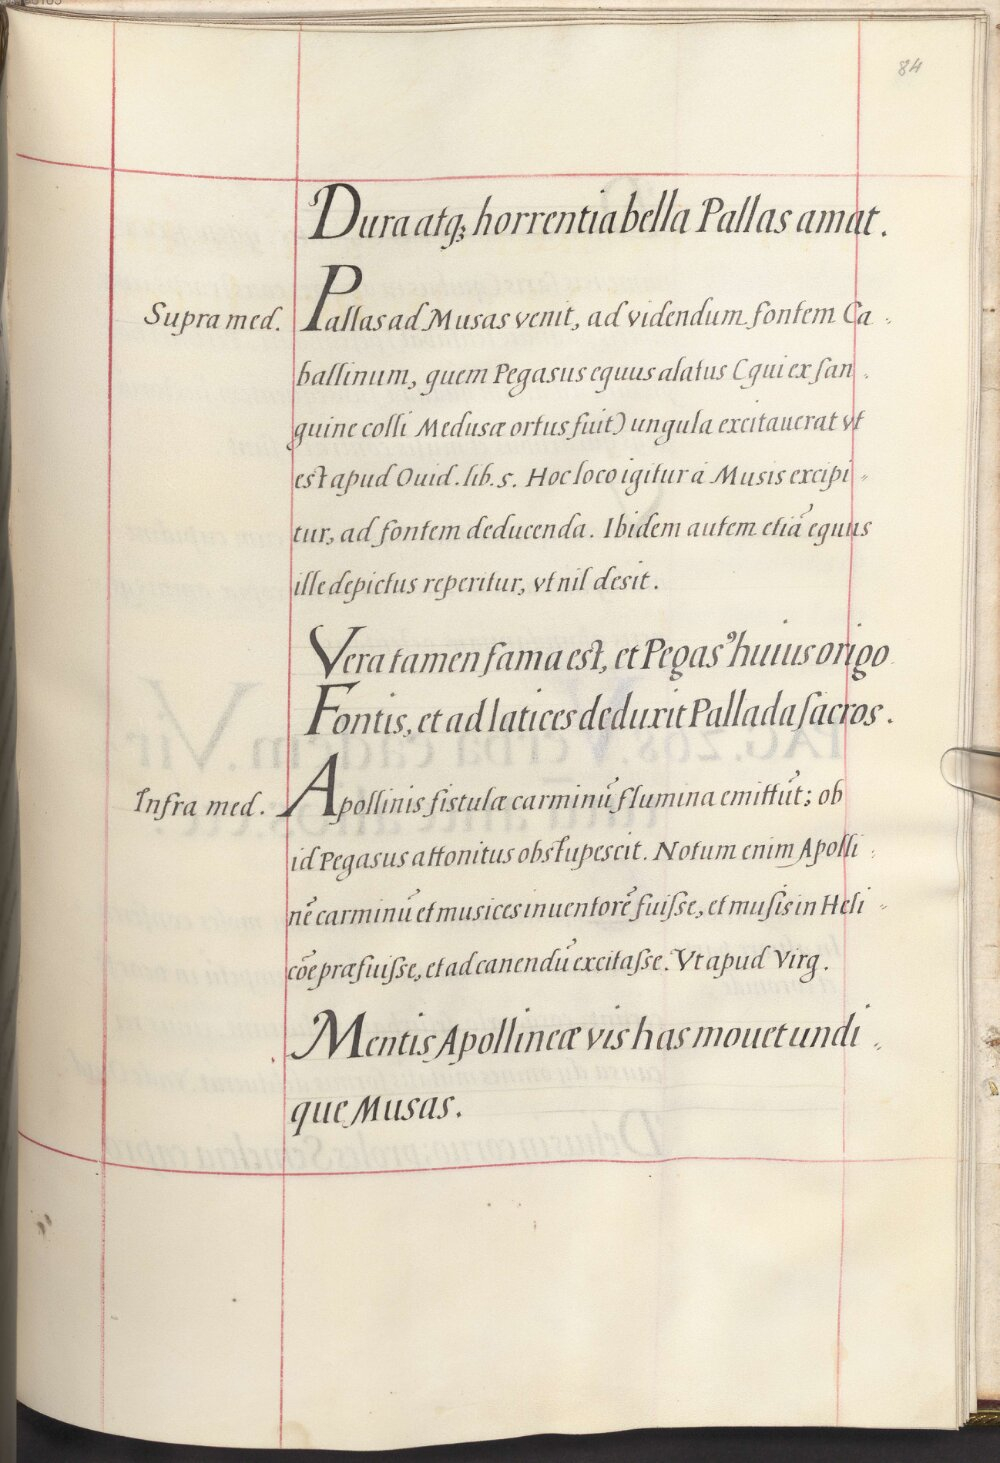 84
Dura atq; horrentia bella Pallas amat.
Supra med.
Pallas ad Musas venit, ad videndum fontem Ca-
ballinum, quem Pegasus equus alatus (qui ex san-
guine colli Medusæ ortus fuit) ungula excitauerat vt
est apud Ouid. lib. 5. Hoc loco igitur à Musis excipi-
tur, ad fontem deducenda. Ibidem autem etiã equus
ille depictus reperitur, vt nil desit.
Vera tamen fama est, et Pegas⁹ huius origo
Fontis, et ad latices deduxit Pallada sacros.
Infra med.
Apollinis fistulæ carminũ flumina emittũt; ob
id Pegasus attonitus obstupescit. Notum enim Apolli-
nẽ carminũ et musices inuentorẽ fuisse, et musis in Heli-
cõe præfuisse, et ad canendũ excitasse. Vt apud Virg.
Mentis Apollineæ vis has mouet undi-
que Musas.